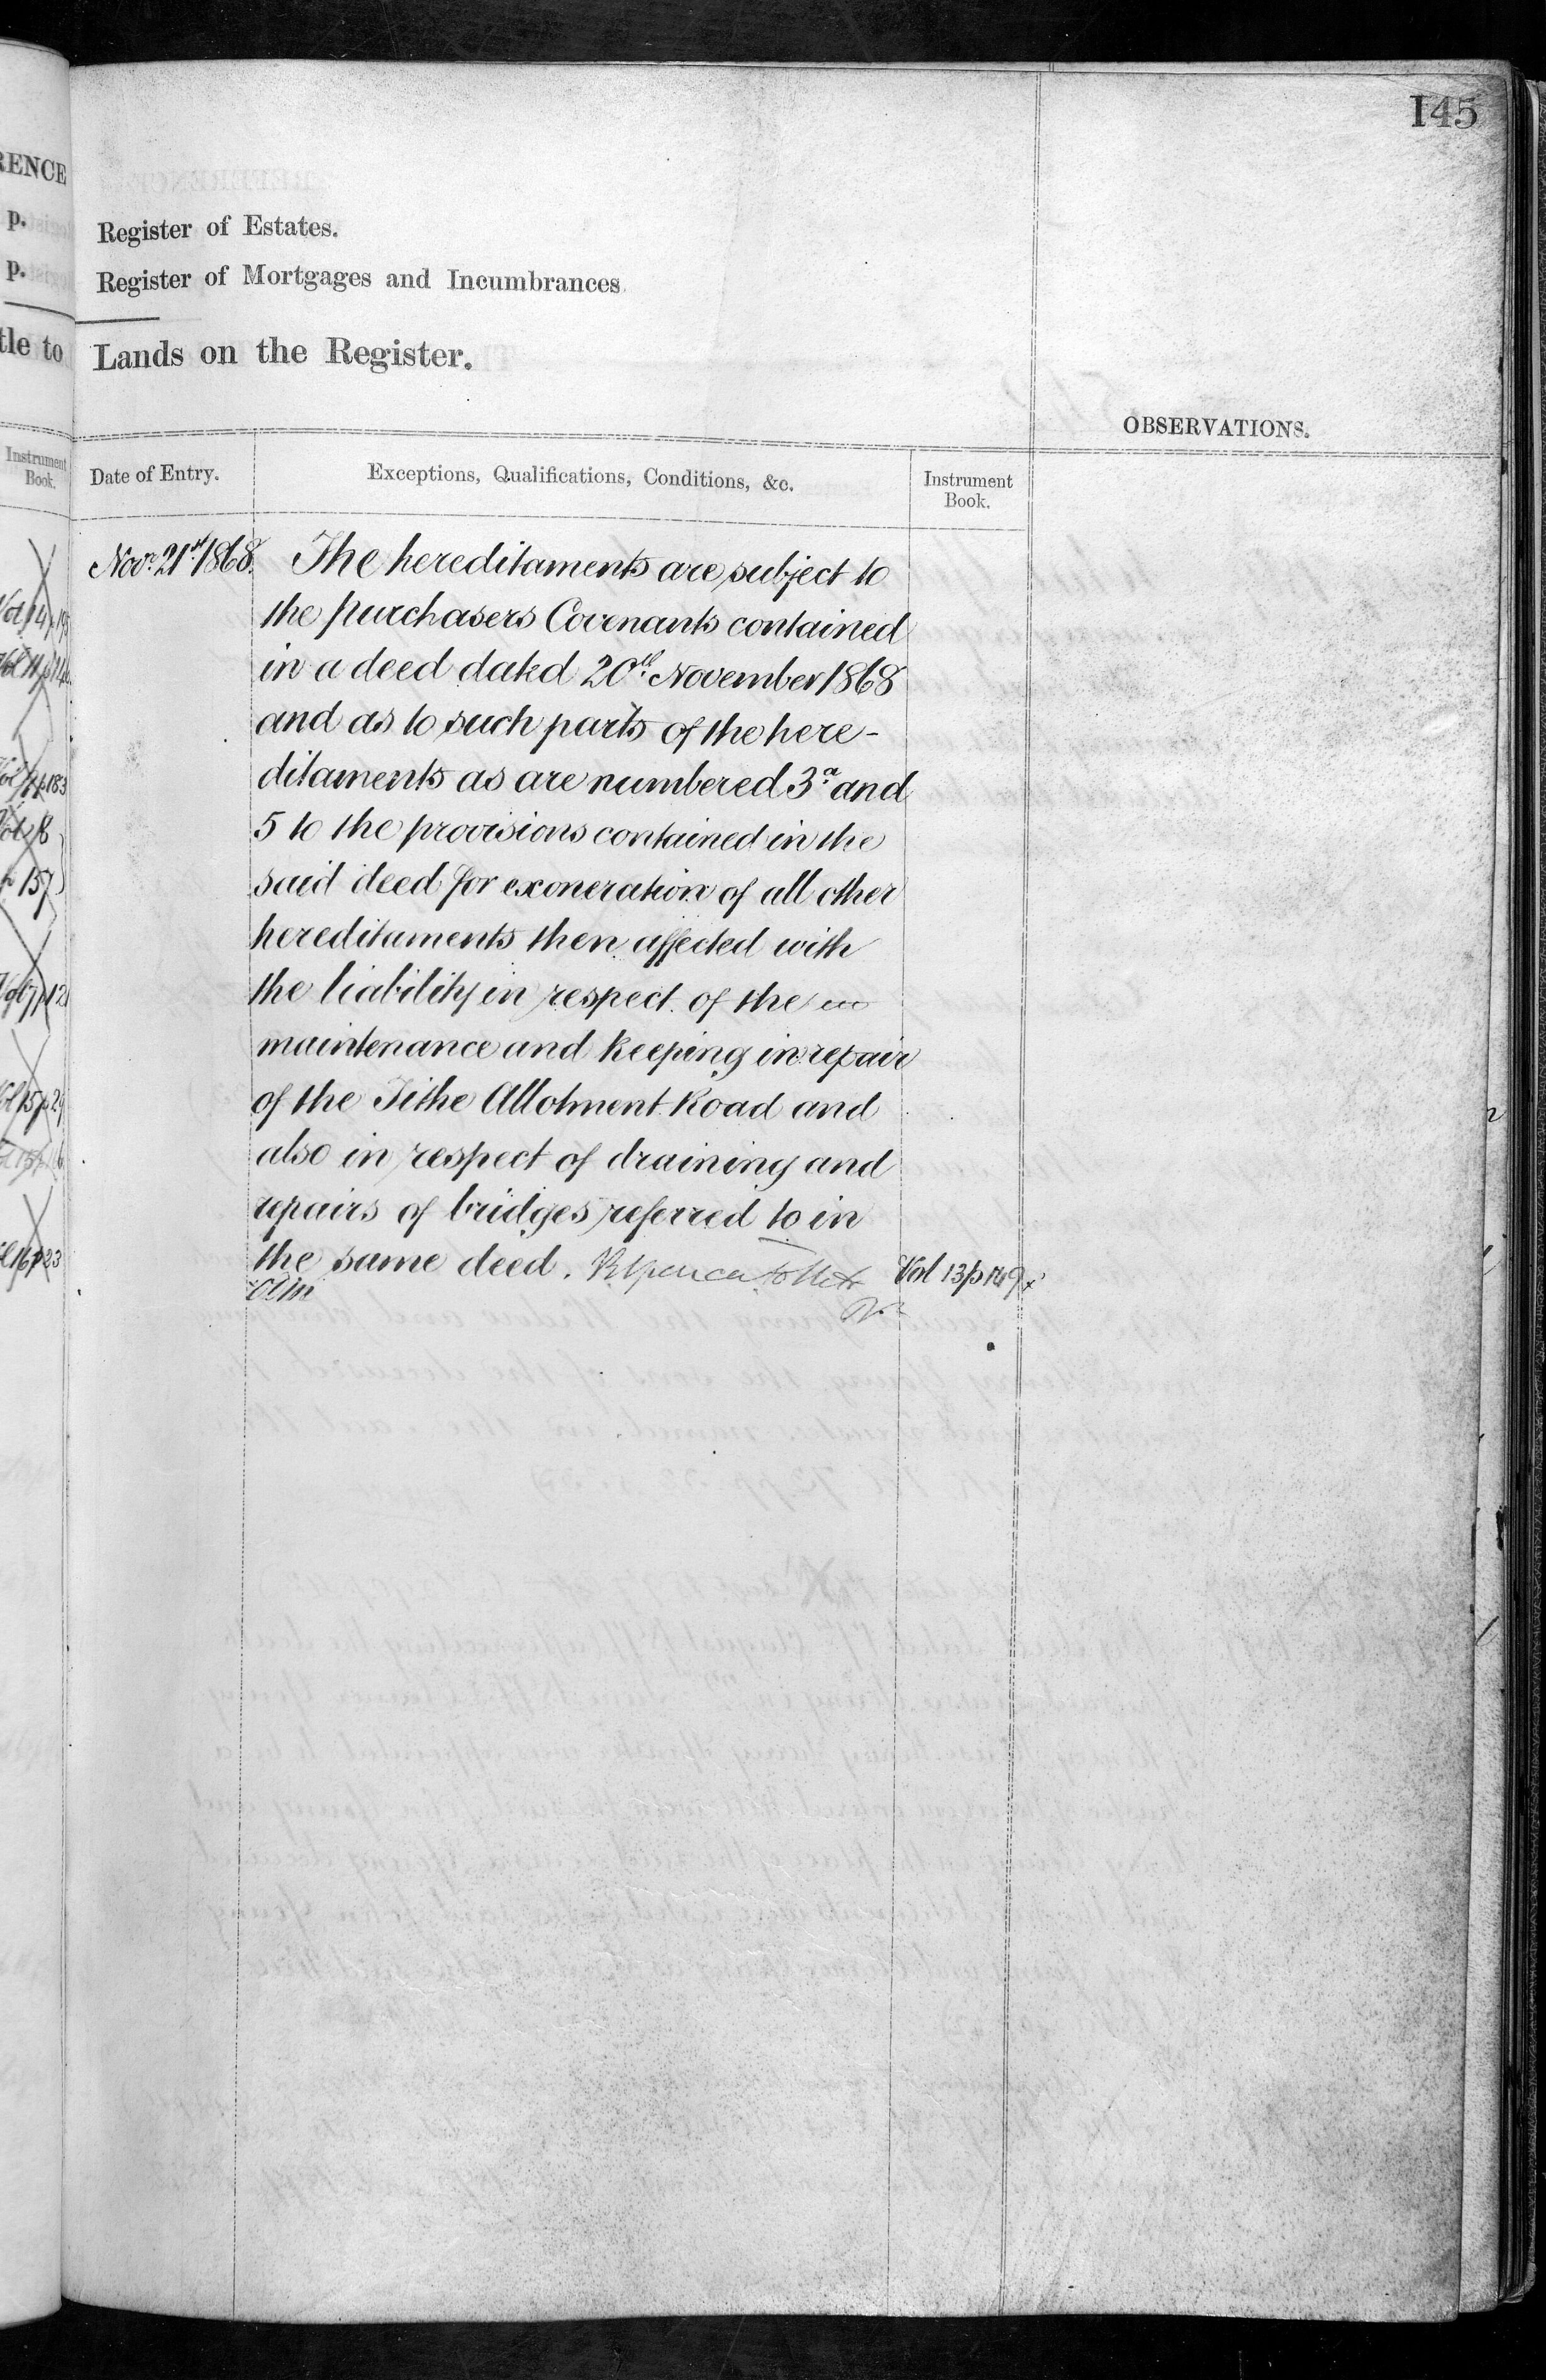 145
RENCE
p.
p.
tle to
Instrument
Book.
Register of Estates.
Register of Mortgages and Incumbrances
Lands on the Register.
OBSERVATIONS.
Date of Entry.
Exceptions, Qualifications, Conditions, &c.
Instrument
Book.
Novr. 21st 1868. The hereditaments are subject to
the purchasers Covenants contained
in a deed dated 20th November 1868
and as to such parts of the here-
ditaments as are numbered 3a and
5 to the provisions contained in the
said deed for exoneration of all other
hereditaments then affected with
the liability in respect of the
maintenance and keeping in repair
of the Tithe Allotment Road and
also in respect of draining and
repairs of bridges referred to in
the same deed. Vol 13 p 149